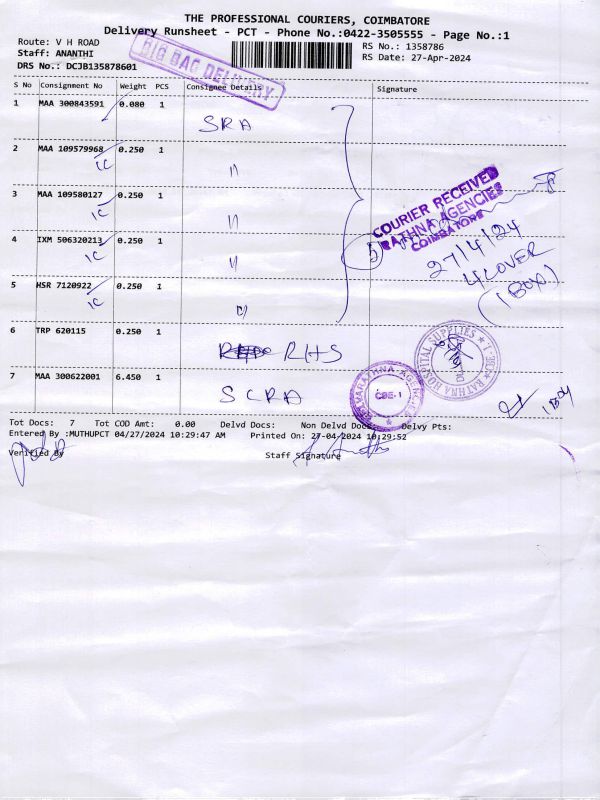 THE PROFESSIONAL COURIERS, COIMBATORE
Delivery Runsheet - PCT - Phone No.:0422-3505555 - Page No.:1
Route: V H ROAD
RS No.: 1358786
Staff: ANANTHI
RS Date: 27-Apr-2024
DRS No.: DCJB135878601
BIG BAG DELIVERY
S No Consignment No Weight PCS Consignee Details Signature
1 MAA 300843591 0.080 1 SRA
2 MAA 109579968 0.250 1 "
IC
3 MAA 109580127 0.250 1 "
IC
4 IXM 506320213 0.250 1 "
IC
5 HSR 7120922 0.250 1 "
IC
COURIER RECEIVED
RATHNA AGENCIES
COIMBATORE
27/4/24
4 COVER
(1 BOX)
6 TRP 620115 0.250 1 RHS
RATHNA HOSPITAL SUPPLIES
7 MAA 300622001 6.450 1 SCRA
CBE-1
1 BOX
Tot Docs: 7 Tot COD Amt: 0.00 Delvd Docs: Non Delvd Docs: Delvy Pts:
Entered By :MUTHUPCT 04/27/2024 10:29:47 AM Printed On: 27-04-2024 10:29:52
Verified By
Staff Signature